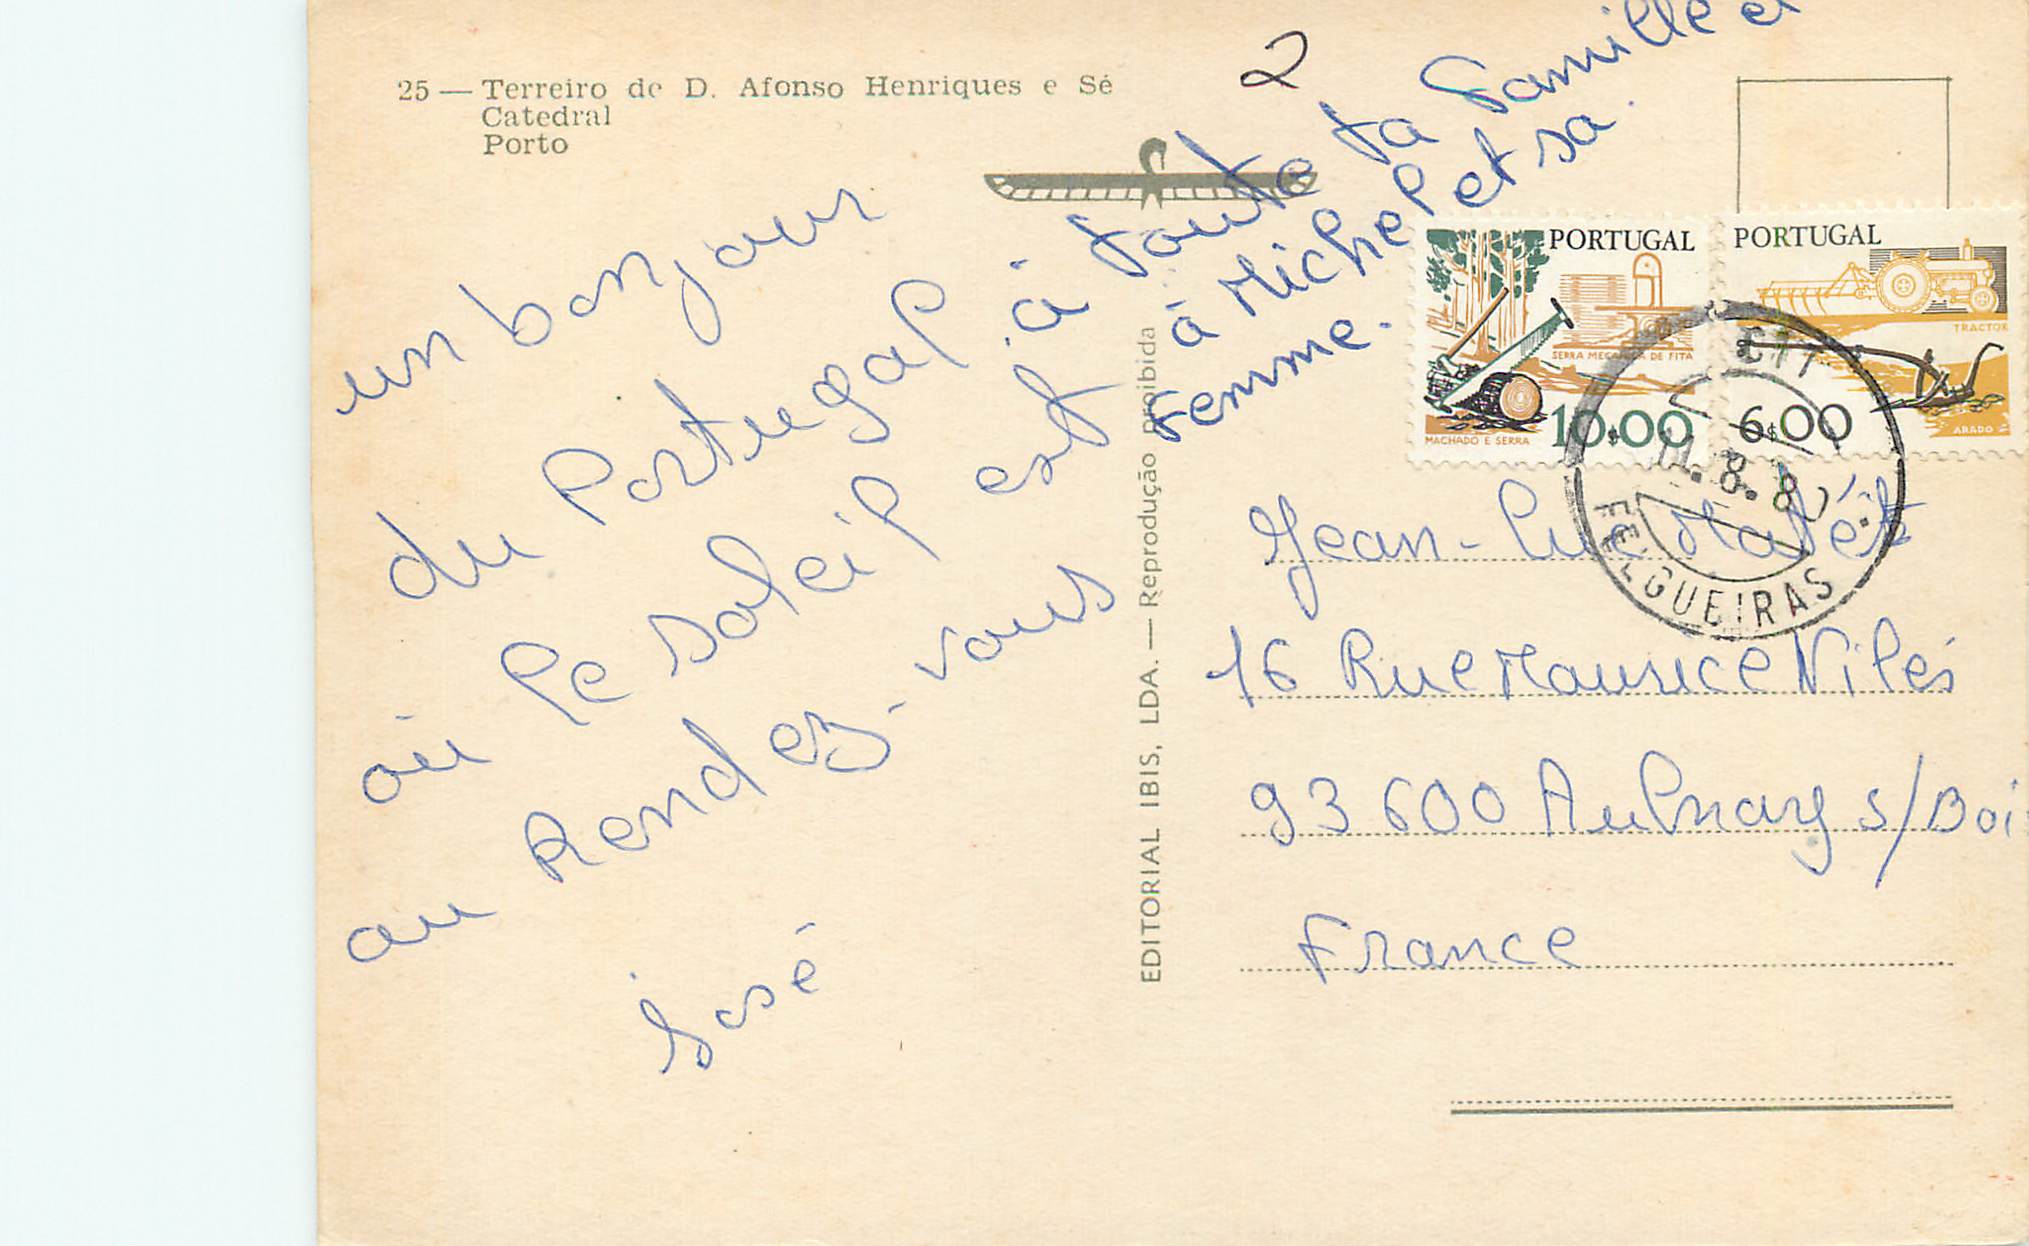 25 — Terreiro de D. Afonso Henriques e Sé
Catedral
Porto
2
un bonjour
du Portugal à toute ta Famille et
où le soleil est à Michel et sa
au Rendez-vous Femme.
José
EDITORIAL IBIS, LDA. — Reprodução proibida
PORTUGAL
SERRA MECANICA DE FITA
10$00
MACHADO E SERRA
PORTUGAL
TRACTOR
6$00
ARADO
CTT
11.8.8
FELGUEIRAS
Jean-Luc
16 Rue Maurice Nilés
93 600 Aulnay s/Boi
France